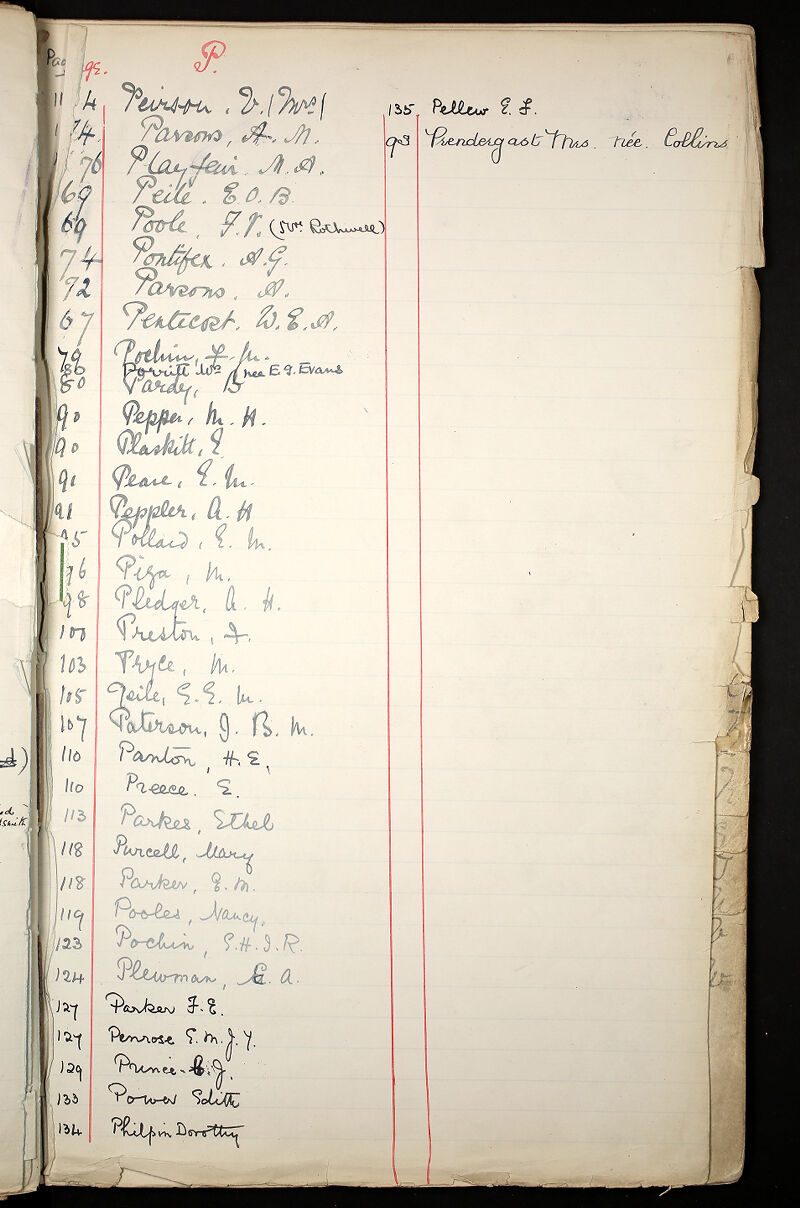 Page. P.
4 Peirson, V. (Mrs)
74. Parsons, A. M.
76 Playfair. M. A.
69 Peile. E. O. B.
69 Poole. F. V. (Mrs Rothwell)
74 Pontifex. A. G.
72 Parsons. A.
67 Pentecost. W. E. A.
79 Pochin, F. M.
80 Porritt Mrs (nee E. G. Evans
80 Pardy, D
90 Pepper, M. H.
90 Plaskitt, E
91 Pearse, E. M.
91 Peppler, A. H
95 Pollard, E. M.
96 Piza, M.
98 Pledger, A. H.
100 Preston, I.
103 Pryce, M.
105 Peile, E. E. M.
107 Paterson, J. B. M.
110 Panton, H. E.
110 Preece. E.
113 Parkes, Ethel
118 Purcell, Mary
118 Parker, E. M.
119 Pooles, Nancy.
123 Pochin, E. H. I. R.
124 Plewman, E. A.
127 Parker F. E.
127 Penrose E. M. J. Y.
129 Prince. C. J.
133 Power Edith
134 Philpin Dorothy
135 Pellew E. F.
98 Prendergast Mrs. née. Collins